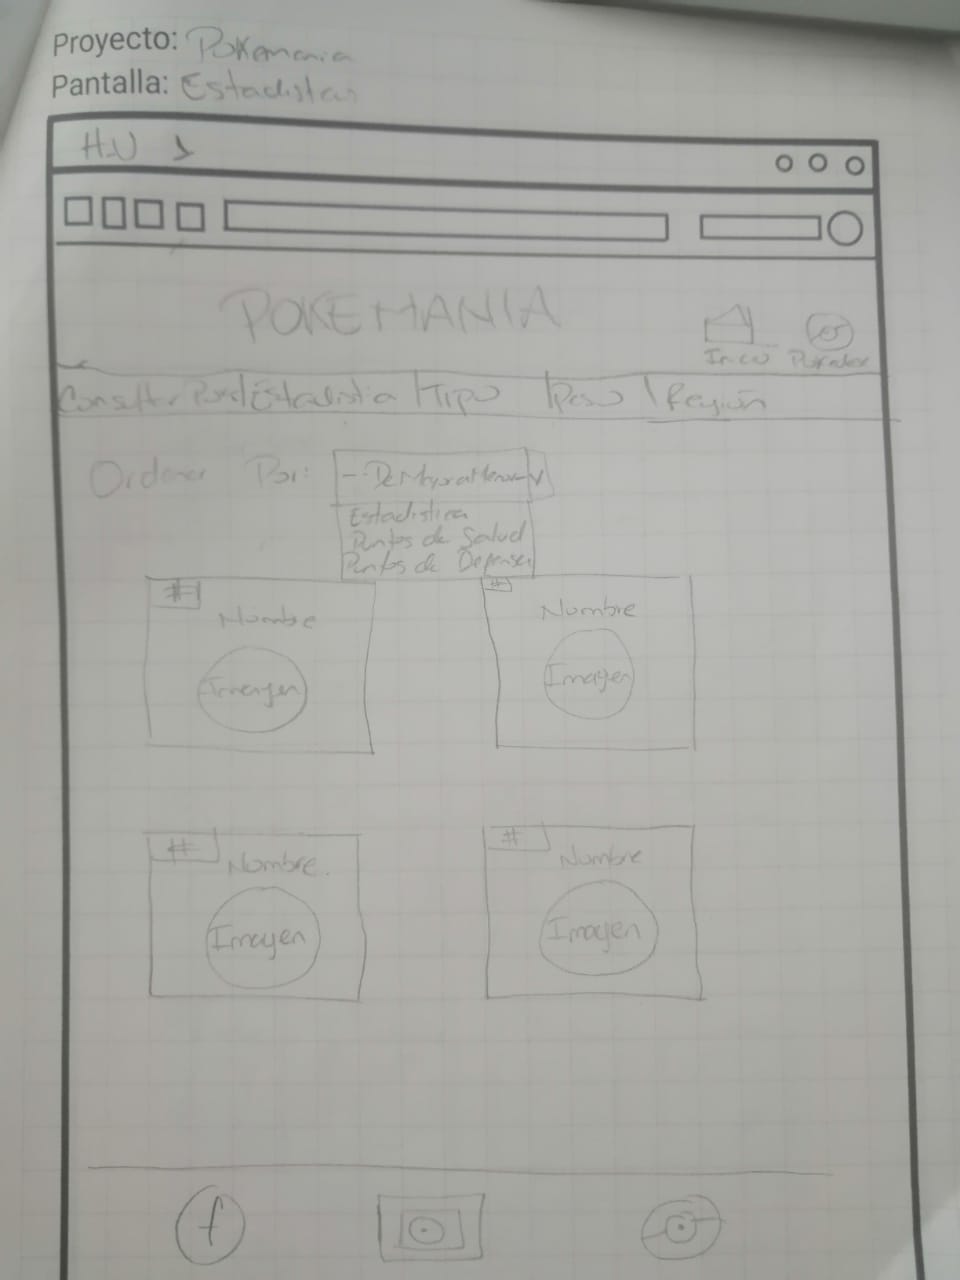 Proyecto: Pokemania
Pantalla: Estadistas
H-U
POKEMANIA
Inicio
Consultar Por: Estadistia | Tipo | Peso | Región
Ordenar Por: -- De Mayor a Menor
Estadistica
Puntos de Salud
Puntos de Defensa
# #
Nombre Nombre
Imagen Imagen
# #
Nombre. Nombre
Imagen Imagen
f